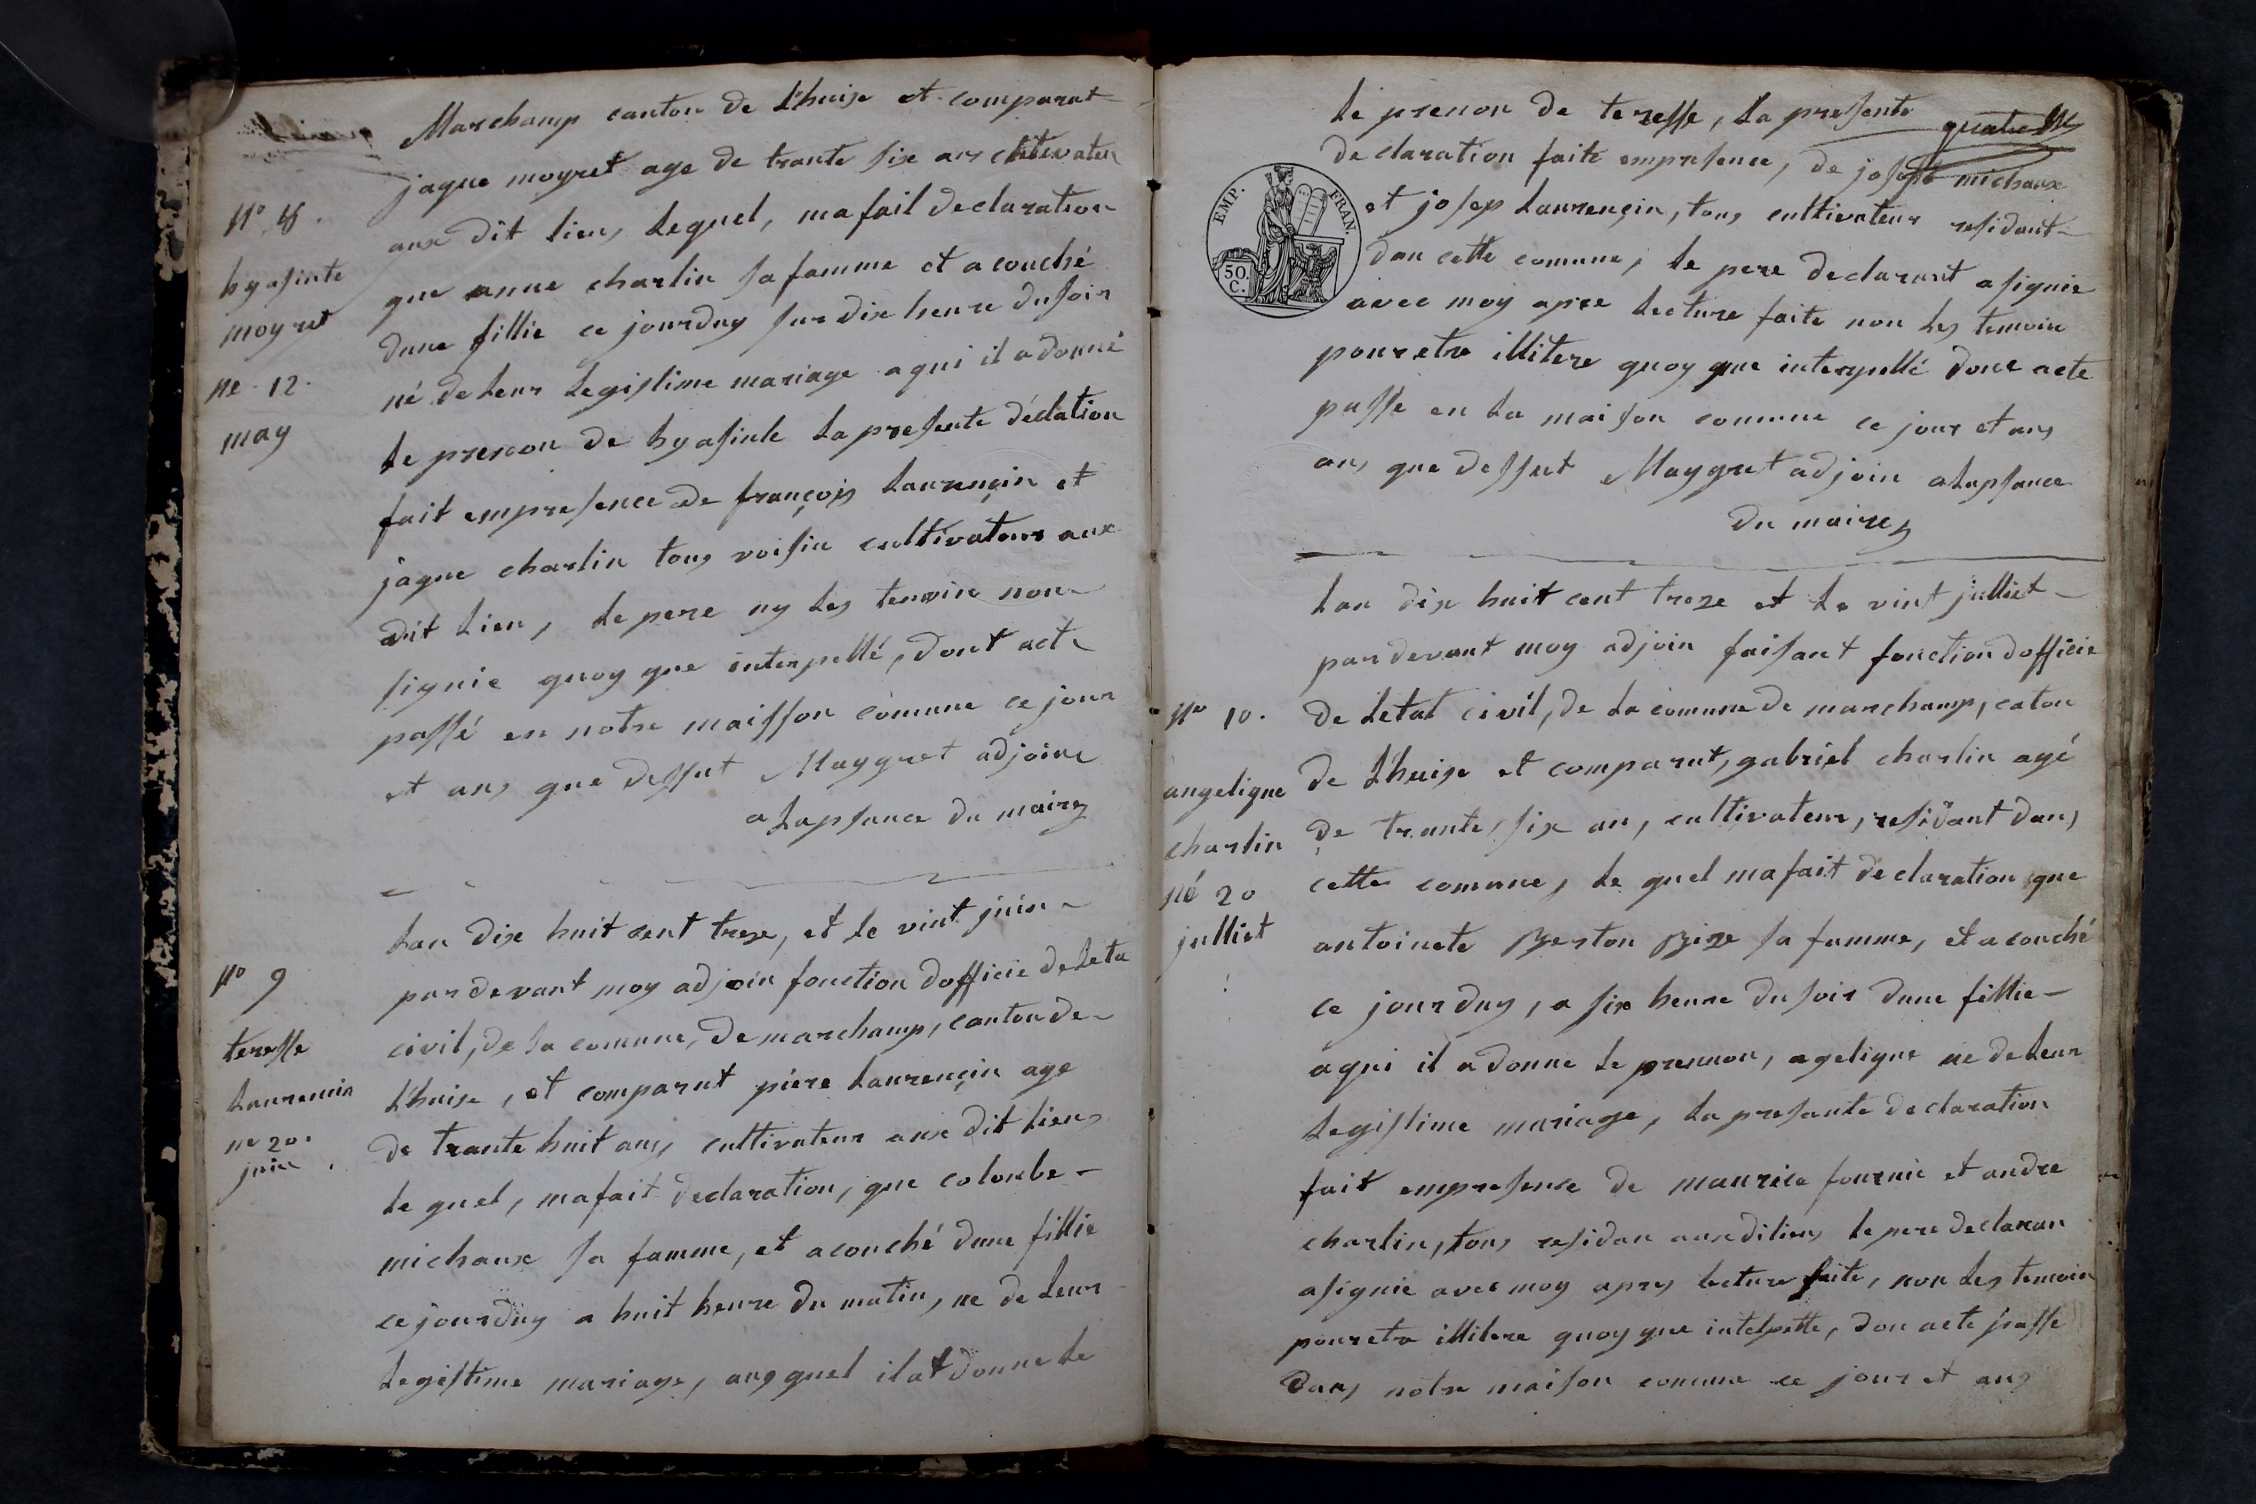 Marchamp canton de Lhuise et comparut
jaque moyret age de trante six ans
N° 8.
aux dit lieu, Lequel, ma fait declaration
hyasinte
que anne charlin sa famme et acouché
moyret
dune fillie ce jourduy sur dix heure du soir
né 12.
né de Leur Legistime mariage aqui il adonné
may
Le prenon de hyasinte La presente déclation
fait empresence de françois Laurençin et
jaque charlin tous voisin cultivateur aux
dit Lieu, Le pere ny Les temoin non
signie quoy que interpellé, dont acte
passé en notre maisson comune ce jour
et ans que dessut Maygret adjoine
a Lapsance du maire
Lan dix huit cent treze, et Le vint juin
N° 9
par devant moy adjoin fonction dofficie de Leta
teresse
civil, de La comune, De marchamp, canton de
Laurencin
Lhuise, et comparut piere Laurençin age
ne 20.
de trante huit ans cultivateur aux dit Lieu
juin
Le quel, ma fait declaration, que colombe
michaux sa famme, et acouché dune fillie
ce jourduy a huit heure du matin, ne de Leur
Legistime mariage, auquel il at donne Le
quatre
Le prenon de teresse, La presente
declaration faite empresence, de joseph michaux
EMP. FRAN.
50. C.
et josep Laurençin, tous cultivateur residant
dan cette comune, Le pere declarant a signie
avec moy apre Lecture faite non Les temoin
pour etre illitere quoy que interpellé donc acte
passe en La maison comune ce jour et ans
ans que dessut Maygret adjoin a Lapsance
du maire
Lan dix huit cent treze et Le vint julliet
par devant moy adjoin faisant fonction dofficie
N° 10.
de Letat civil, de La comune De marchamp, caton
angelique
de Lhuise et comparut, gabriel charlin agé
charlin
de trante, six an, cultivateur, residant dans
né 20
cette comune, Le quel ma fait declaration que
julliet
antoinete Berton Bize sa famme, et acouché
ce jourduy, a six heure du soir dune fillie
aqui il a donne Le prennon, ageliqne ne de Leur
Legistime mariage, La presante declaration
fait empresence de maurice fournie et andre
charlin, tous residan aux dilieu Le pere declaran
asignie avec moy apres Lecture faite, non Les temoin
pour etre illitere quoy que intelpelle, don acte passe
dans notre maison comune ce jour et ans